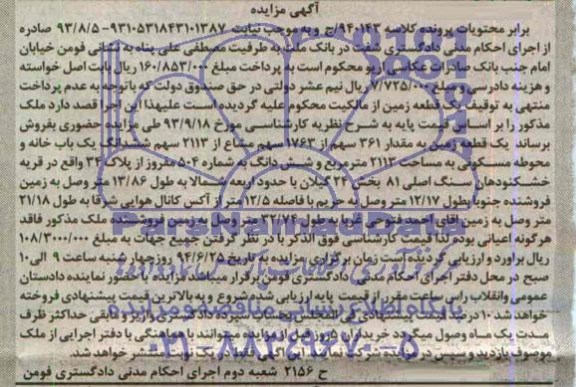 آگهی مزایده
برابر محتویات پرونده کلاسه ۹۴۰۱۴۳/ج و به موجب نیابت ۹۳۱۰۵۳۱۸۴۳۱۰۱۳۸۷-۹۳/۸/۵ صادره
از اجرای احکام مدنی دادگستری شفت در بانک ملت به طرفیت مصطفی علی پناه به نشانی فومن خیابان
امام جنب بانک صادرات عکاسی اریو محکوم است به پرداخت مبلغ ۱۶۰/۸۵۳/۰۰۰ ریال بابت اصل خواسته
و هزینه دادرسی و مبلغ ۷/۷۲۵/۰۰۰ ریال نیم عشر دولتی در حق صندوق دولت که باتوجه به عدم پرداخت
منتهی به توقیف یک قطعه زمین از مالکیت محکوم علیه گردیده است علیهذا این اجرا قصد دارد ملک
مذکور را بر اساس قیمت پایه به شرح نظریه کارشناسی مورخ ۹۳/۹/۱۸ طی مزایده حضوری بفروش
برساند یک قطعه زمین به مقدار ۳۶۱ سهم از ۱۷۶۳ سهم مشاع از ۲۱۱۳ سهم ششدانگ یک باب خانه و
محوطه مسکونی به مساحت ۲۱۱۳ مترمربع و شش دانگ به شماره ۵۰۴ مفروز از پلاک ۳۴ واقع در قریه
خشکنودهان سنگ اصلی ۸۱ بخش ۲۴ گیلان با حدود اربعه شمالا به طول ۱۳/۸۶ متر وصل به زمین
فروشنده جنوبا بطول ۱۲/۱۷ متر وصل به حریم با فاصله ۱۲/۵ متر از آکس کانال هوایی شرقا به طول ۲۱/۱۸
متر وصل به زمین اقای احمد فتوحی غربا به طول ۳۲/۷۴ متر وصل به زمین فروشنده ملک مذکور فاقد
هرگونه اعیانی بوده لذا قیمت کارشناسی فوق الذکر با در نظر گرفتن جمیع جهات به مبلغ ۱۰۸/۳۰۰۰/۰۰۰
ریال براورد و ارزیابی گردیده است زمان برگزاری مزایده به تاریخ ۹۴/۶/۲۵ روز چهارشنبه ساعت ۹ الی ۱۰
صبح در محل دفتر اجرای احکام مدنی دادگستری فومن برگزار میباشد مزایده با حضور نماینده دادستان
عمومی وانقلاب راس ساعت مقرر از قیمت پایه ارزیابی شده شروع و به بالاترین قیمت پیشنهادی فروخته
خواهد شد ۱۰ درصد قیمت پیشنهادی فی المجلس سپرده دادگستری واریز و مابقی حداکثر ظرف
مدت یک ماه وصول میگردد خریداران ۵ روز قبل از مزایده میتوانند با هماهنگی با دفتر اجرایی از ملک
موصوف بازدید و سپس در مزایده شرکت نمایند این آگهی فقط در یک نوبت منتشر خواهد شد.
ح ۲۱۵۶ شعبه دوم اجرای احکام مدنی دادگستری فومن
ParsNamadData
۰۲۱-۸۸۳۴۹۶۷۰-۵